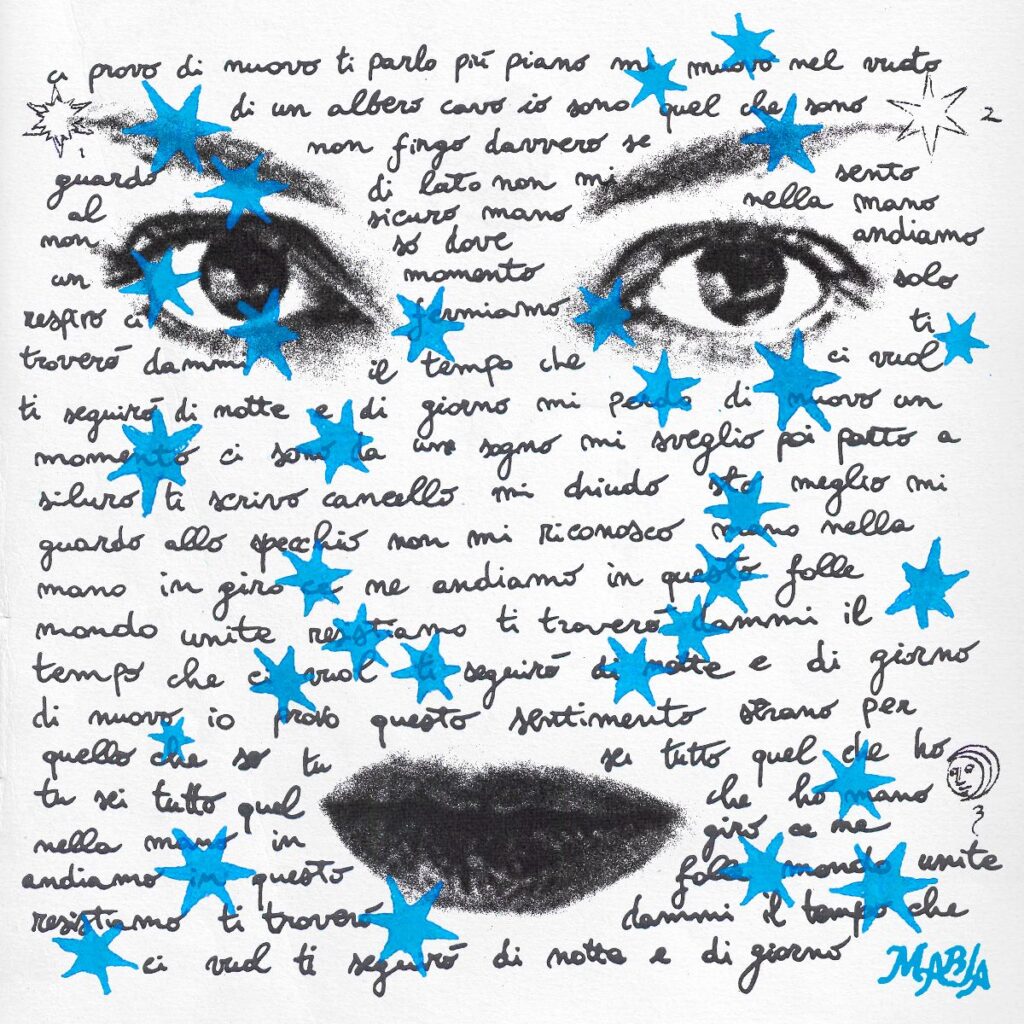 ci provo di nuovo ti parlo più piano mi muovo nel vuoto
di un albero cavo io sono quel che sono
1 non fingo davvero se 2
guardo di lato non mi sento
al sicuro mano nella mano
non so dove andiamo
un momento solo
respiro ci fermiamo ti
troveró dammi il tempo che ci vuol
ti seguiró di notte e di giorno mi perdo di nuovo un
momento ci sono da un sogno mi sveglio poi parto a
siluro ti scrivo cancello mi chiudo sto meglio mi
guardo allo specchio non mi riconosco mano nella
mano in giro ce ne andiamo in questo folle
mondo unite resistiamo ti troveró dammi il
tempo che ci vuol ti seguiró di notte e di giorno
di nuovo io provo questo sentimento strano per
quello che so tu sei tutto quel che ho
tu sei tutto quel che ho mano
3
nella mano in giro ce ne
andiamo in questo folle mondo unite
resistiamo ti troveró dammi il tempo che
ci vuol ti seguiró di notte e di giorno
MABLA